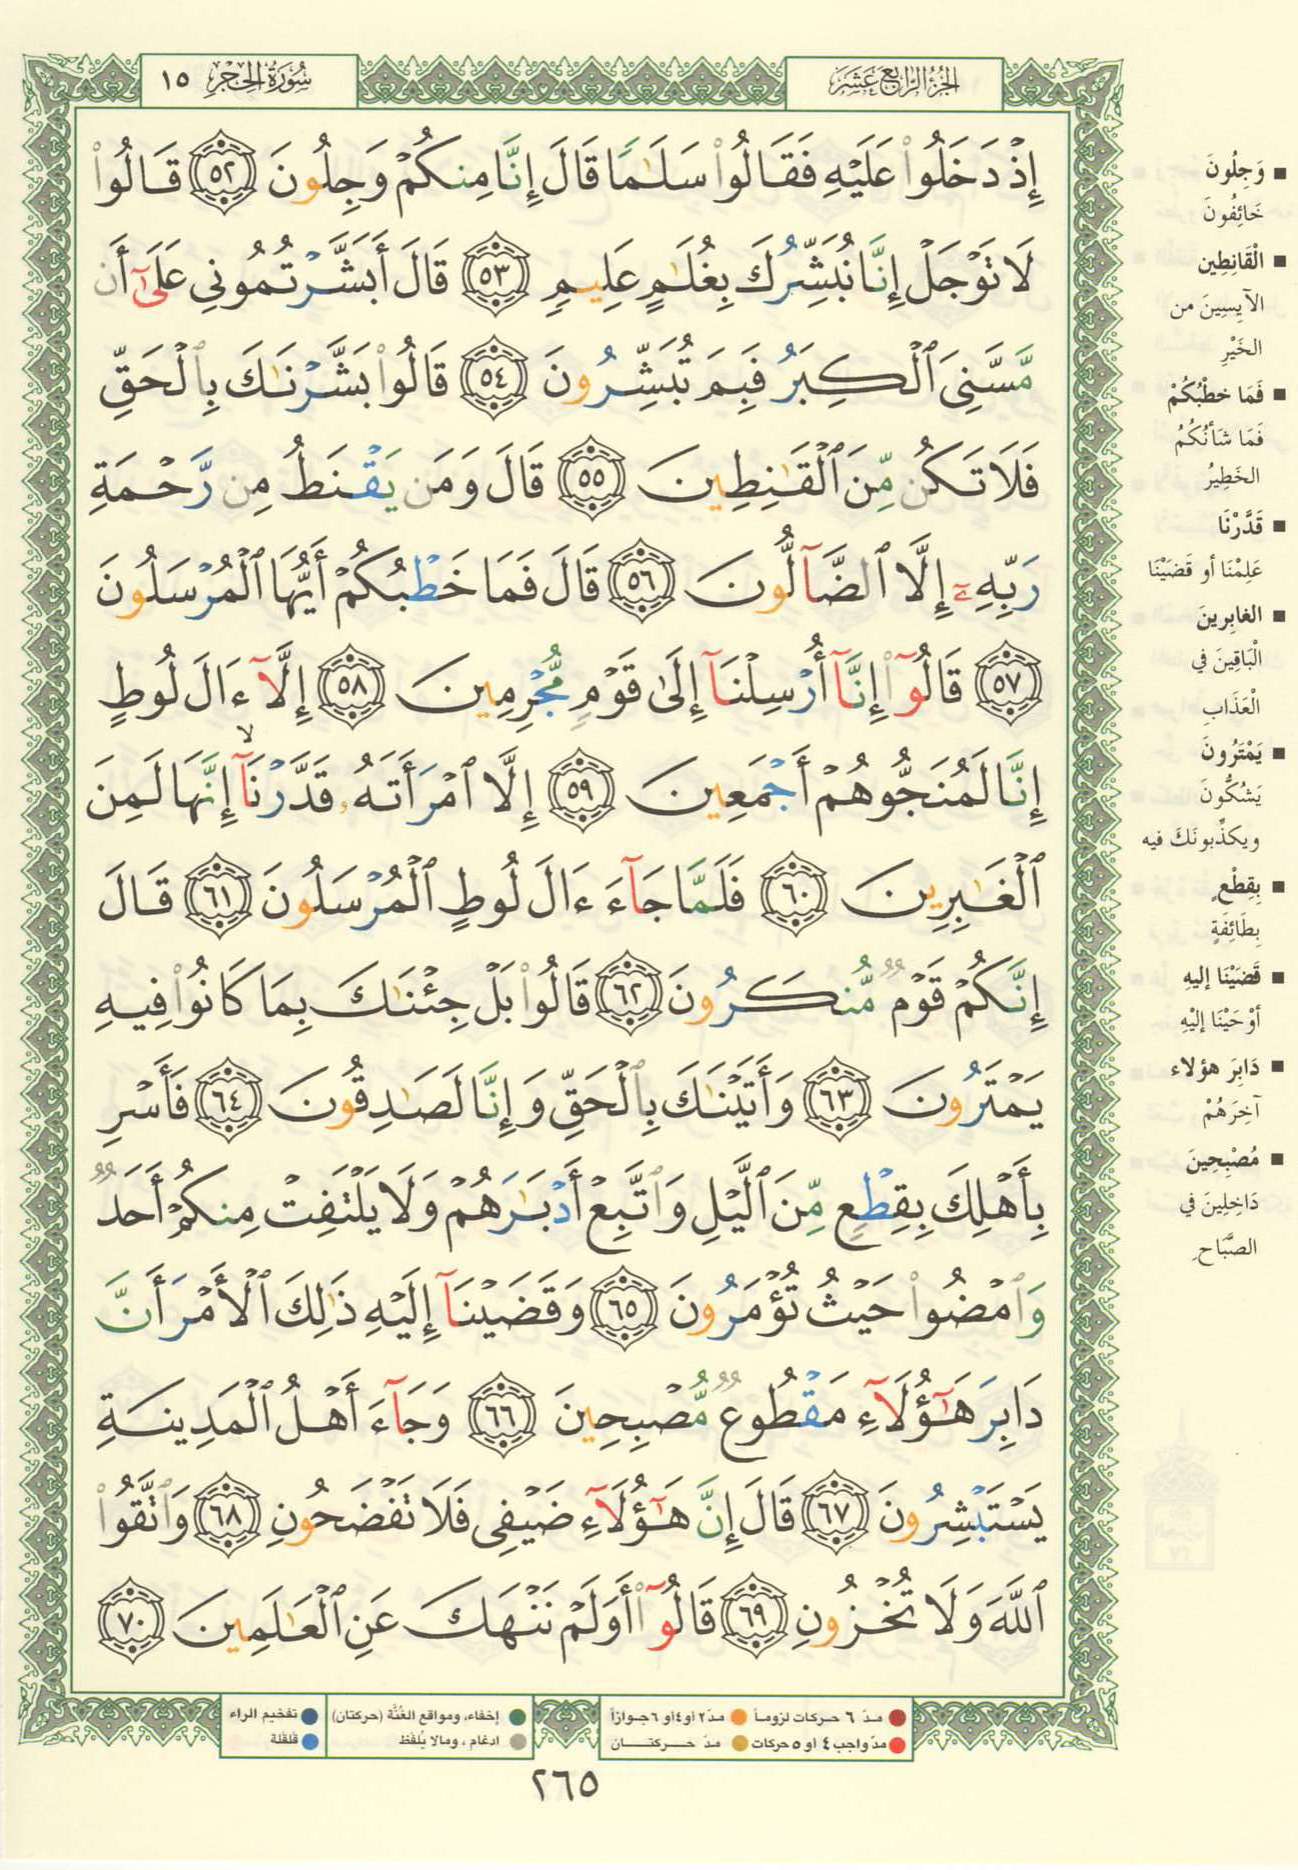 الجزء الرابع عشر
سورة الحجر ١٥
إِذْ دَخَلُوا۟ عَلَيْهِ فَقَالُوا۟ سَلَـٰمًا قَالَ إِنَّا مِنكُمْ وَجِلُونَ ٥٢ قَالُوا۟
لَا تَوْجَلْ إِنَّا نُبَشِّرُكَ بِغُلَـٰمٍ عَلِيمٍ ٥٣ قَالَ أَبَشَّرْتُمُونِى عَلَىٰٓ أَن
مَّسَّنِىَ ٱلْكِبَرُ فَبِمَ تُبَشِّرُونَ ٥٤ قَالُوا۟ بَشَّرْنَـٰكَ بِٱلْحَقِّ
فَلَا تَكُن مِّنَ ٱلْقَـٰنِطِينَ ٥٥ قَالَ وَمَن يَقْنَطُ مِن رَّحْمَةِ
رَبِّهِۦٓ إِلَّا ٱلضَّآلُّونَ ٥٦ قَالَ فَمَا خَطْبُكُمْ أَيُّهَا ٱلْمُرْسَلُونَ
٥٧ قَالُوٓا۟ إِنَّآ أُرْسِلْنَآ إِلَىٰ قَوْمٍ مُّجْرِمِينَ ٥٨ إِلَّآ ءَالَ لُوطٍ
إِنَّا لَمُنَجُّوهُمْ أَجْمَعِينَ ٥٩ إِلَّا ٱمْرَأَتَهُۥ قَدَّرْنَآ ۙ إِنَّهَا لَمِنَ
ٱلْغَـٰبِرِينَ ٦٠ فَلَمَّا جَآءَ ءَالَ لُوطٍ ٱلْمُرْسَلُونَ ٦١ قَالَ
إِنَّكُمْ قَوْمٌ مُّنكَرُونَ ٦٢ قَالُوا۟ بَلْ جِئْنَـٰكَ بِمَا كَانُوا۟ فِيهِ
يَمْتَرُونَ ٦٣ وَأَتَيْنَـٰكَ بِٱلْحَقِّ وَإِنَّا لَصَـٰدِقُونَ ٦٤ فَأَسْرِ
بِأَهْلِكَ بِقِطْعٍ مِّنَ ٱلَّيْلِ وَٱتَّبِعْ أَدْبَـٰرَهُمْ وَلَا يَلْتَفِتْ مِنكُمْ أَحَدٌ
وَٱمْضُوا۟ حَيْثُ تُؤْمَرُونَ ٦٥ وَقَضَيْنَآ إِلَيْهِ ذَٰلِكَ ٱلْأَمْرَ أَنَّ
دَابِرَ هَـٰٓؤُلَآءِ مَقْطُوعٌ مُّصْبِحِينَ ٦٦ وَجَآءَ أَهْلُ ٱلْمَدِينَةِ
يَسْتَبْشِرُونَ ٦٧ قَالَ إِنَّ هَـٰٓؤُلَآءِ ضَيْفِى فَلَا تَفْضَحُونِ ٦٨ وَٱتَّقُوا۟
ٱللَّهَ وَلَا تُخْزُونِ ٦٩ قَالُوٓا۟ أَوَلَمْ نَنْهَكَ عَنِ ٱلْعَـٰلَمِينَ ٧٠
وَجِلُونَ
خَائِفُونَ
الْقَانِطِين
الآيِسِينَ من
الخَيْرِ
فَمَا خطْبُكُمْ
فَمَا شَأنُكُمُ
الخَطِيرُ
قَدَّرْنَا
عَلِمْنَا أو قَضَيْنَا
الغابِرينَ
الْبَاقِينَ في
الْعَذَابِ
يَمْتَرُونَ
يَشكُّونَ
ويكذِّبونَكَ فيه
بِقِطْعٍ
بِطَائِفَةٍ
قَضَيْنَا إليهِ
أوْحَيْنَا إليْهِ
دَابِرَ هؤلاء
آخِرَهُمْ
مُصْبِحِينَ
دَاخِلِينَ في
الصَّبَاحِ
مدّ ٦ حركات لزوماً مدّ ٢ أو ٤ أو ٦ جوازاً
مدّ واجب ٤ أو ٥ حركات مدّ حركتان
إخفاء، ومواقع الغُنَّة (حركتان) تفخيم الراء
ادغام ، ومالا يُلفَظ قلقلة
٢٦٥